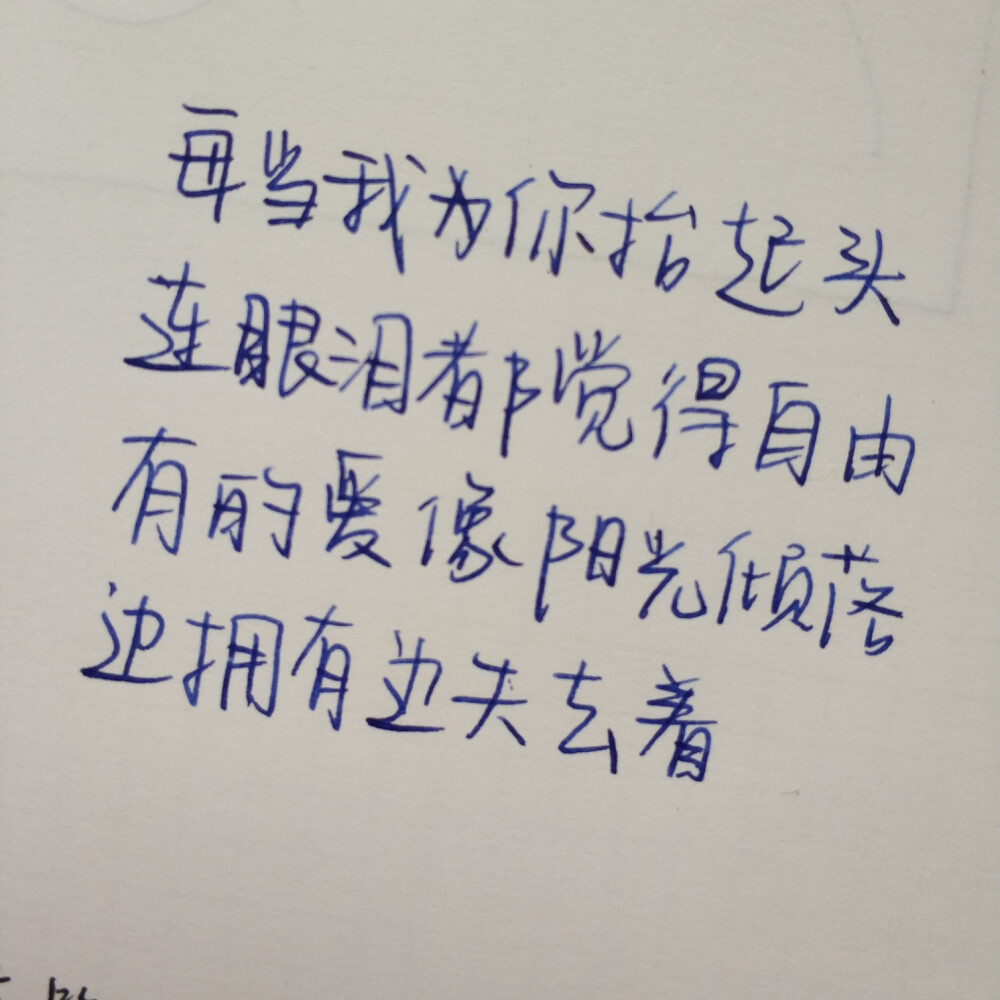 每当我为你抬起头
连眼泪都觉得自由
有的爱像阳光倾落
边拥有边失去着